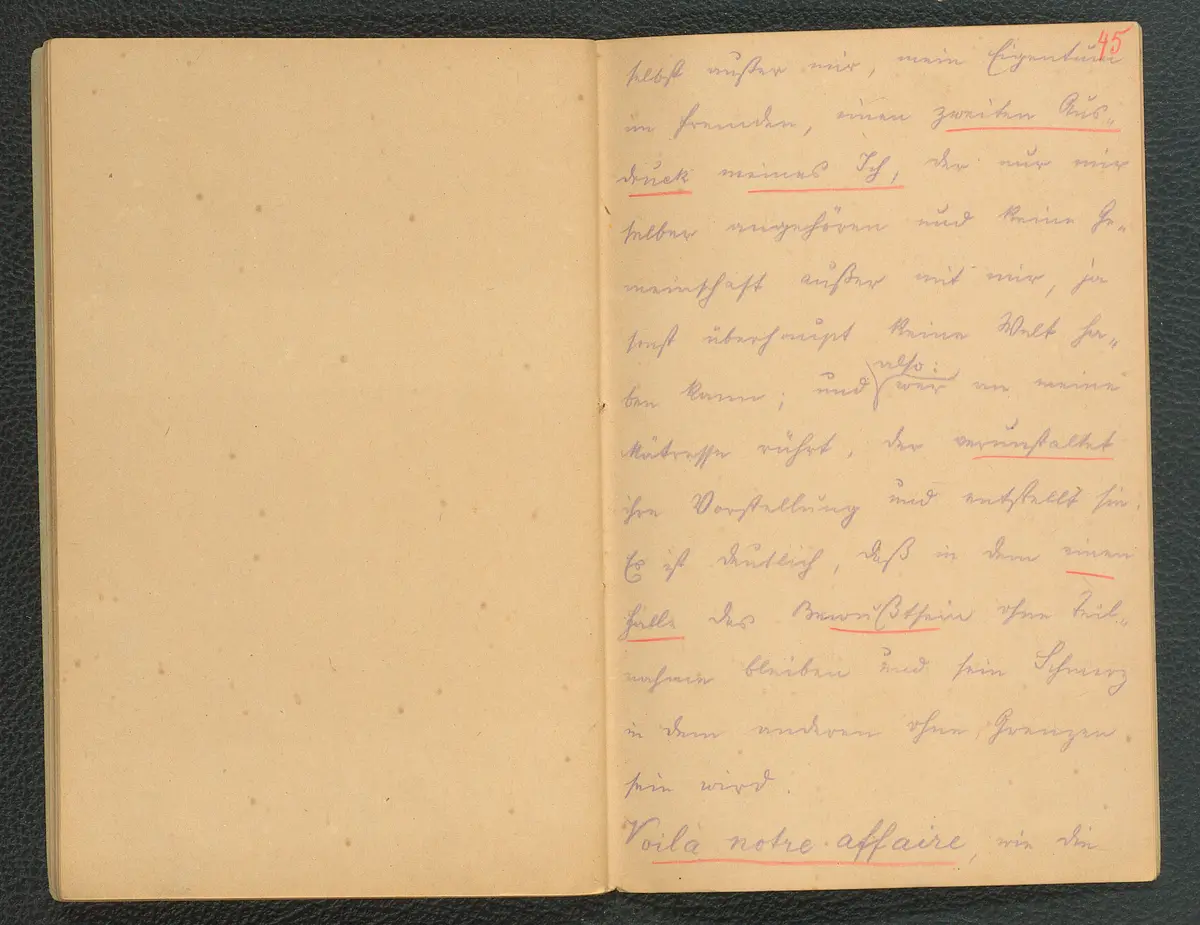 45
selbst außer mir, mein Eigentum
im fremden, einen zweiten Aus-
druck meines Ich, der nur mir
selber angehören und keine Ge-
meinschaft außer mit mir, ja
sonst überhaupt keine Welt ha-
ben kann; und also: wer an meine
Mätresse rührt, der verunstaltet
ihre Vorstellung und entstellt sie.
Es ist deutlich, daß in dem einen
Falle das Bewußtsein ohne Teil-
nahme bleiben und sein Schmerz
in dem anderen ohne Grenzen
sein wird.
Voilà notre affaire, wie die